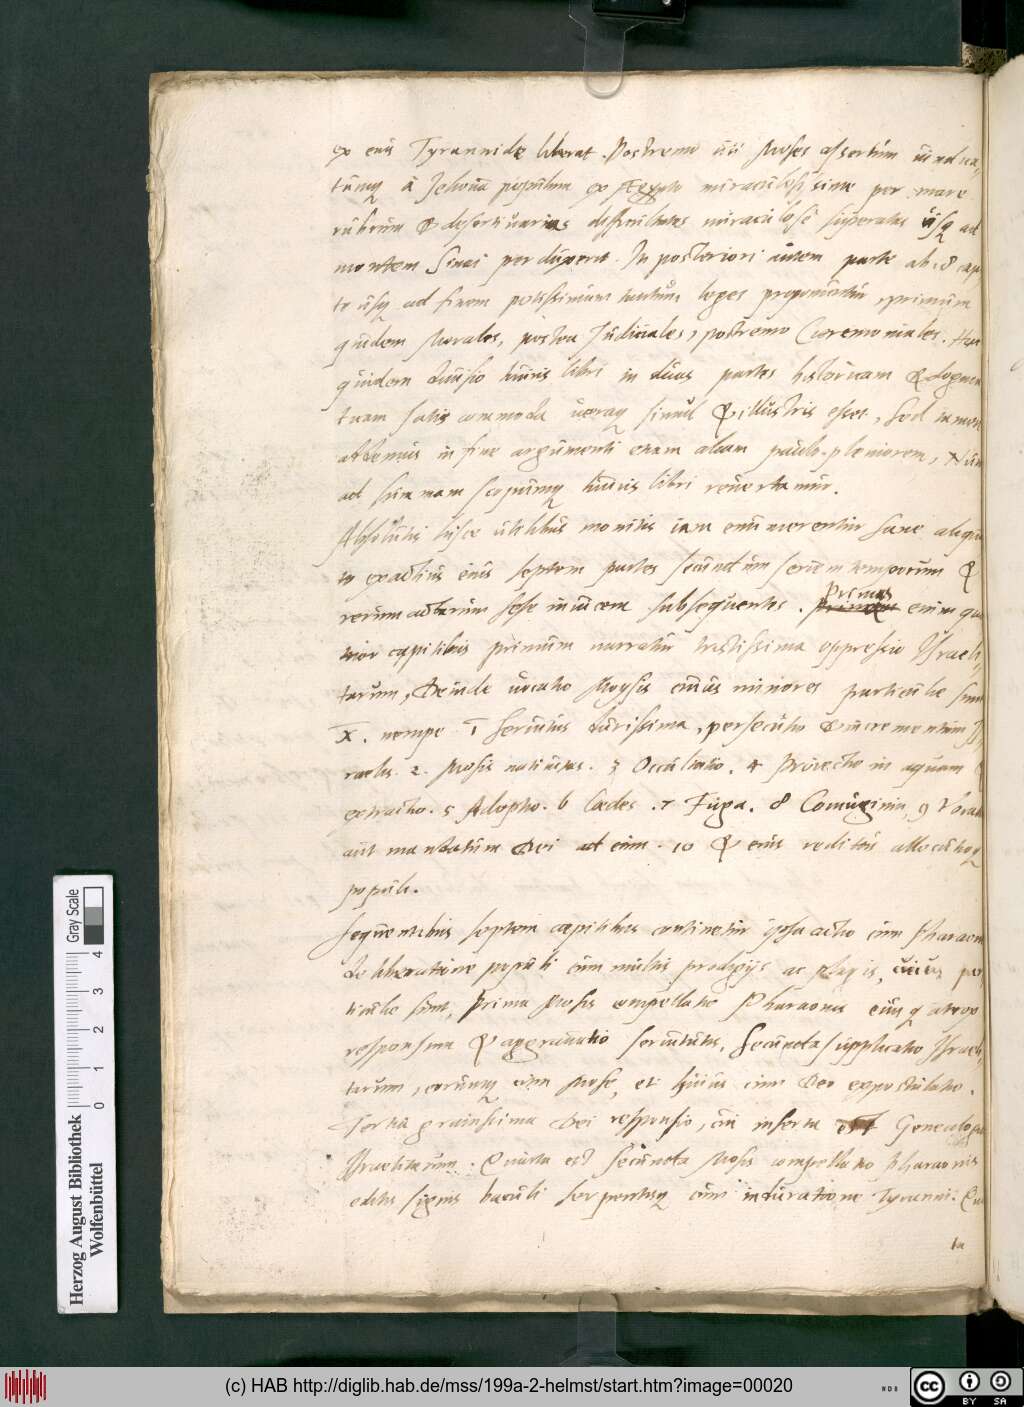 ex eius Tyrannide liberat. Postremo ubi Moses assertum vindica-
tumq; à Jehova populum ex Ægypto miraculosissime per mare
rubrum & deserti varias difficultates miraculosè superatas usq; ad
montem Sinai perduxerit. In posteriori autem parte ab .8 capi-
te usq; ad finem potissimum tantum leges proponuntur, primum
quidem Morales, postea Judiciales, postremo Cæremoniales. Hæc
quidem divisio huius libri in duas partes historicam & dogma-
ticam satis commoda veraq; simul & illustris esset, sed tamen
attemus in fine argumenti etiam aliam paulo pleniorem, Nunc
ad summam scopumq; huius libri revertamur.
Absolutis hisce utilibus monitis iam enumerentur sane aliquan-
to exactius eius septem partes secundum seriem temporum &
rerum actarum sese invicem subsequentes. Primus enim qua-
tuor capitibus primum narratur tristissima oppressio Israeli-
tarum, deinde vocatio Moysis cuius minores particulæ sunt
X. nempe 1 servitus durissima, persecutio & incrementum Is-
raelis. 2. Mosis nativitas. 3 Occultatio. 4 Proiectio in aquam &
extractio. 5 Adoptio. 6 Cædes. 7 Fuga. 8 Coniugium, 9 Vocatio
aut mandatum Dei ad eum. 10 & eius reditus allocutioq;
populi.
Sequentibus septem capitibus continetur ipsa actio cum Pharaone
de liberatione populi cum multis prodigijs ac plagis, cuius par-
ticulæ sunt, Prima Mosis compellatio Pharaonis eiusq; atrox
responsum & aggravatio servitutis. Secunda supplicatio Israeli-
tarum, eorumq; cum Mose, et huius cum Deo expostulatio.
Tertia gravissima Dei responsio, cui inserta est Genealogia
Israelitarum. Quarta est secunda Mosis compellatio Pharaonis
editis signis baculi serpentisq; cum induratione Tyranni. Quin-
ta
Herzog August Bibliothek
Wolfenbüttel
0 1 2 3 4
Gray Scale
(c) HAB http://diglib.hab.de/mss/199a-2-helmst/start.htm?image=00020
cc BY SA